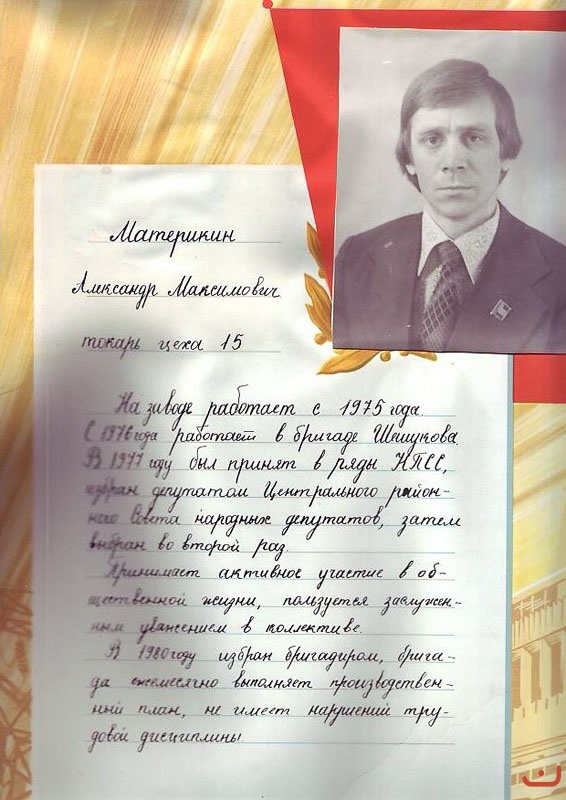 Материкин
Александр Максимович
токарь цеха 15
На заводе работает с 1975 года.
С 1976 года работает в бригаде Шешукова.
В 1977 году был принят в ряды КПСС,
избран депутатом Центрального район-
ного Совета народных депутатов, затем
выбран во второй раз.
Принимает активное участие в об-
щественной жизни, пользуется заслужен-
ным уважением в коллективе.
В 1980 году избран бригадиром, брига-
да ежемесячно выполняет производствен-
ный план, не имеет нарушений тру-
довой дисциплины.